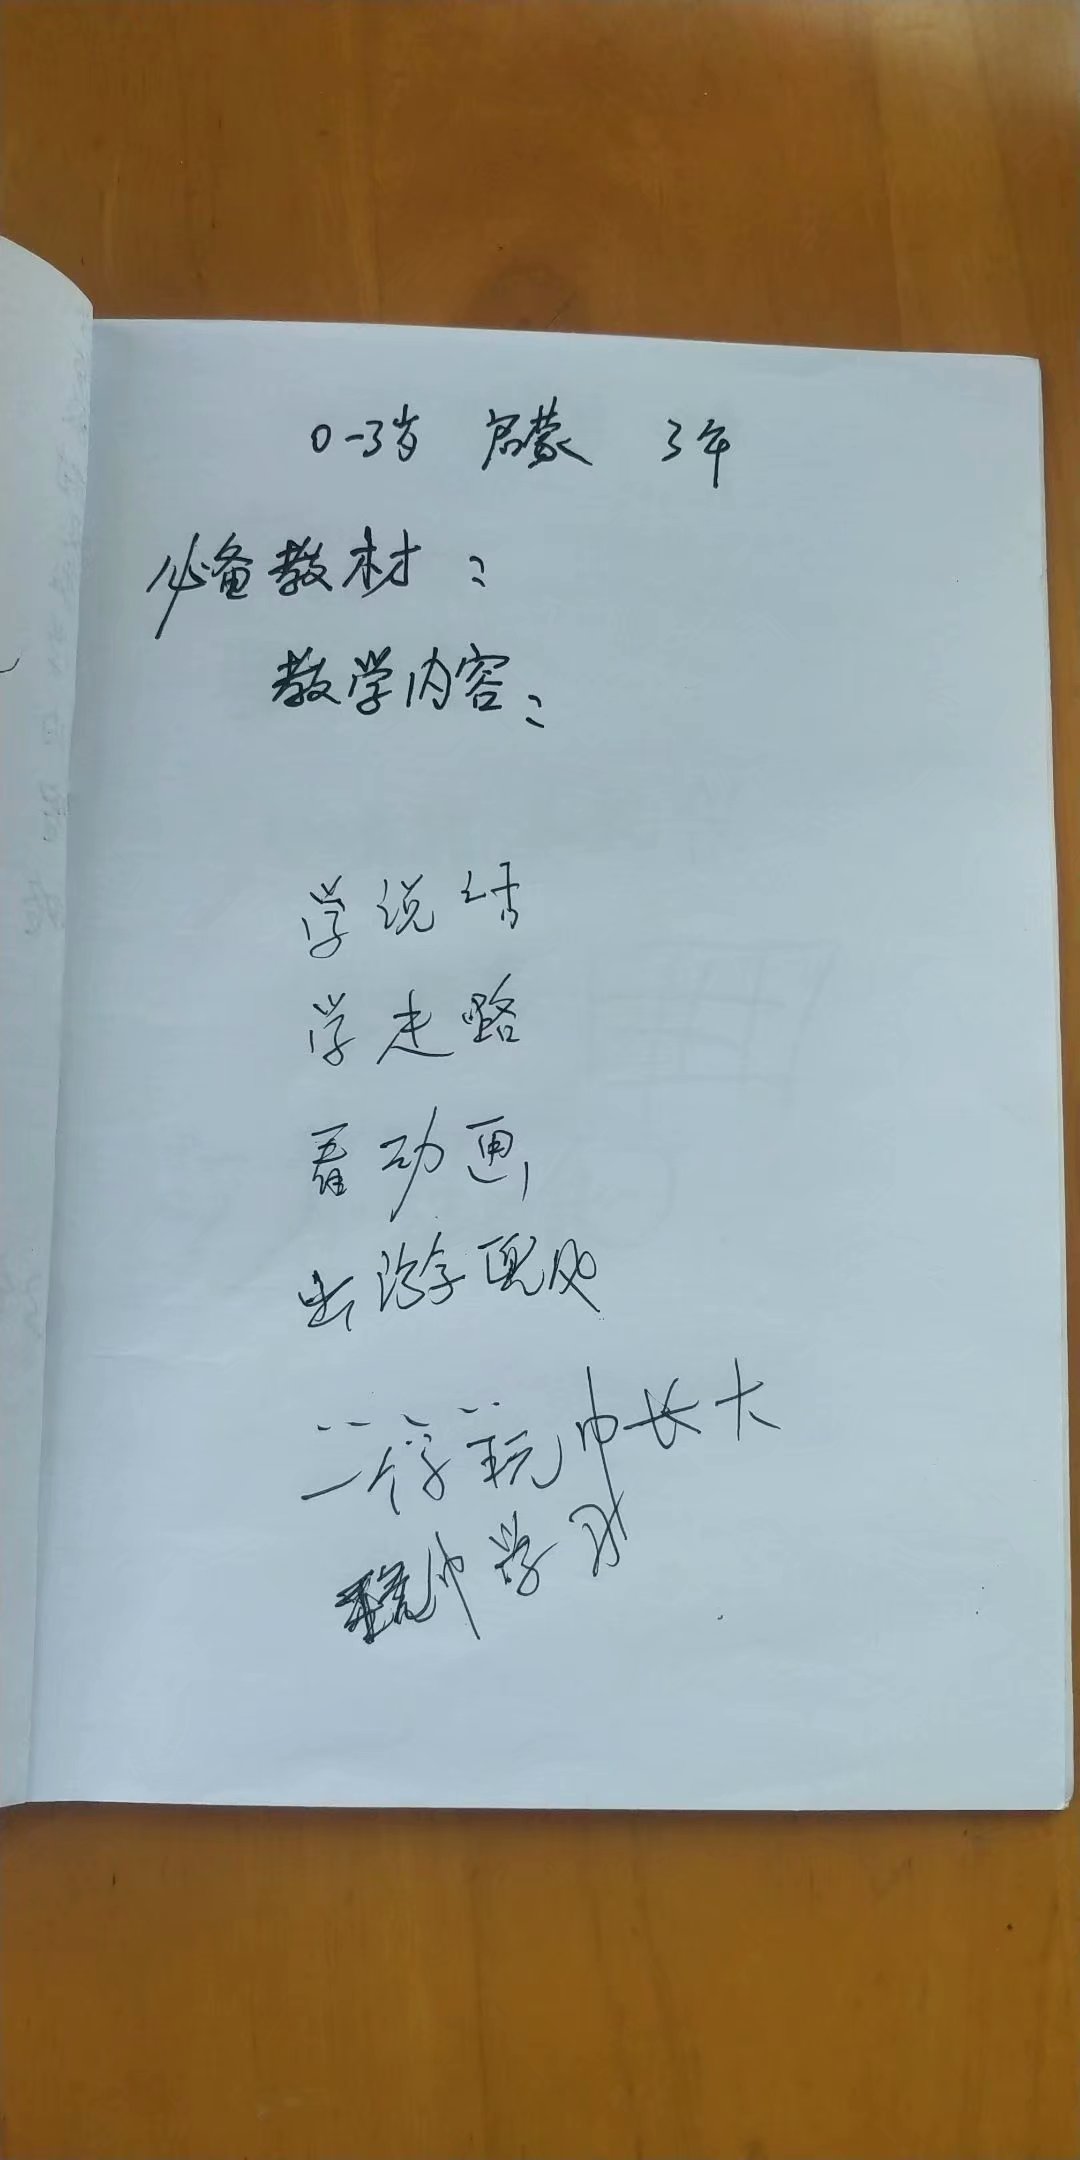 0-3岁 启蒙 3年
必备教材：
教学内容：
学说话
学走路
看动画
出游
玩中长大
玩中学习